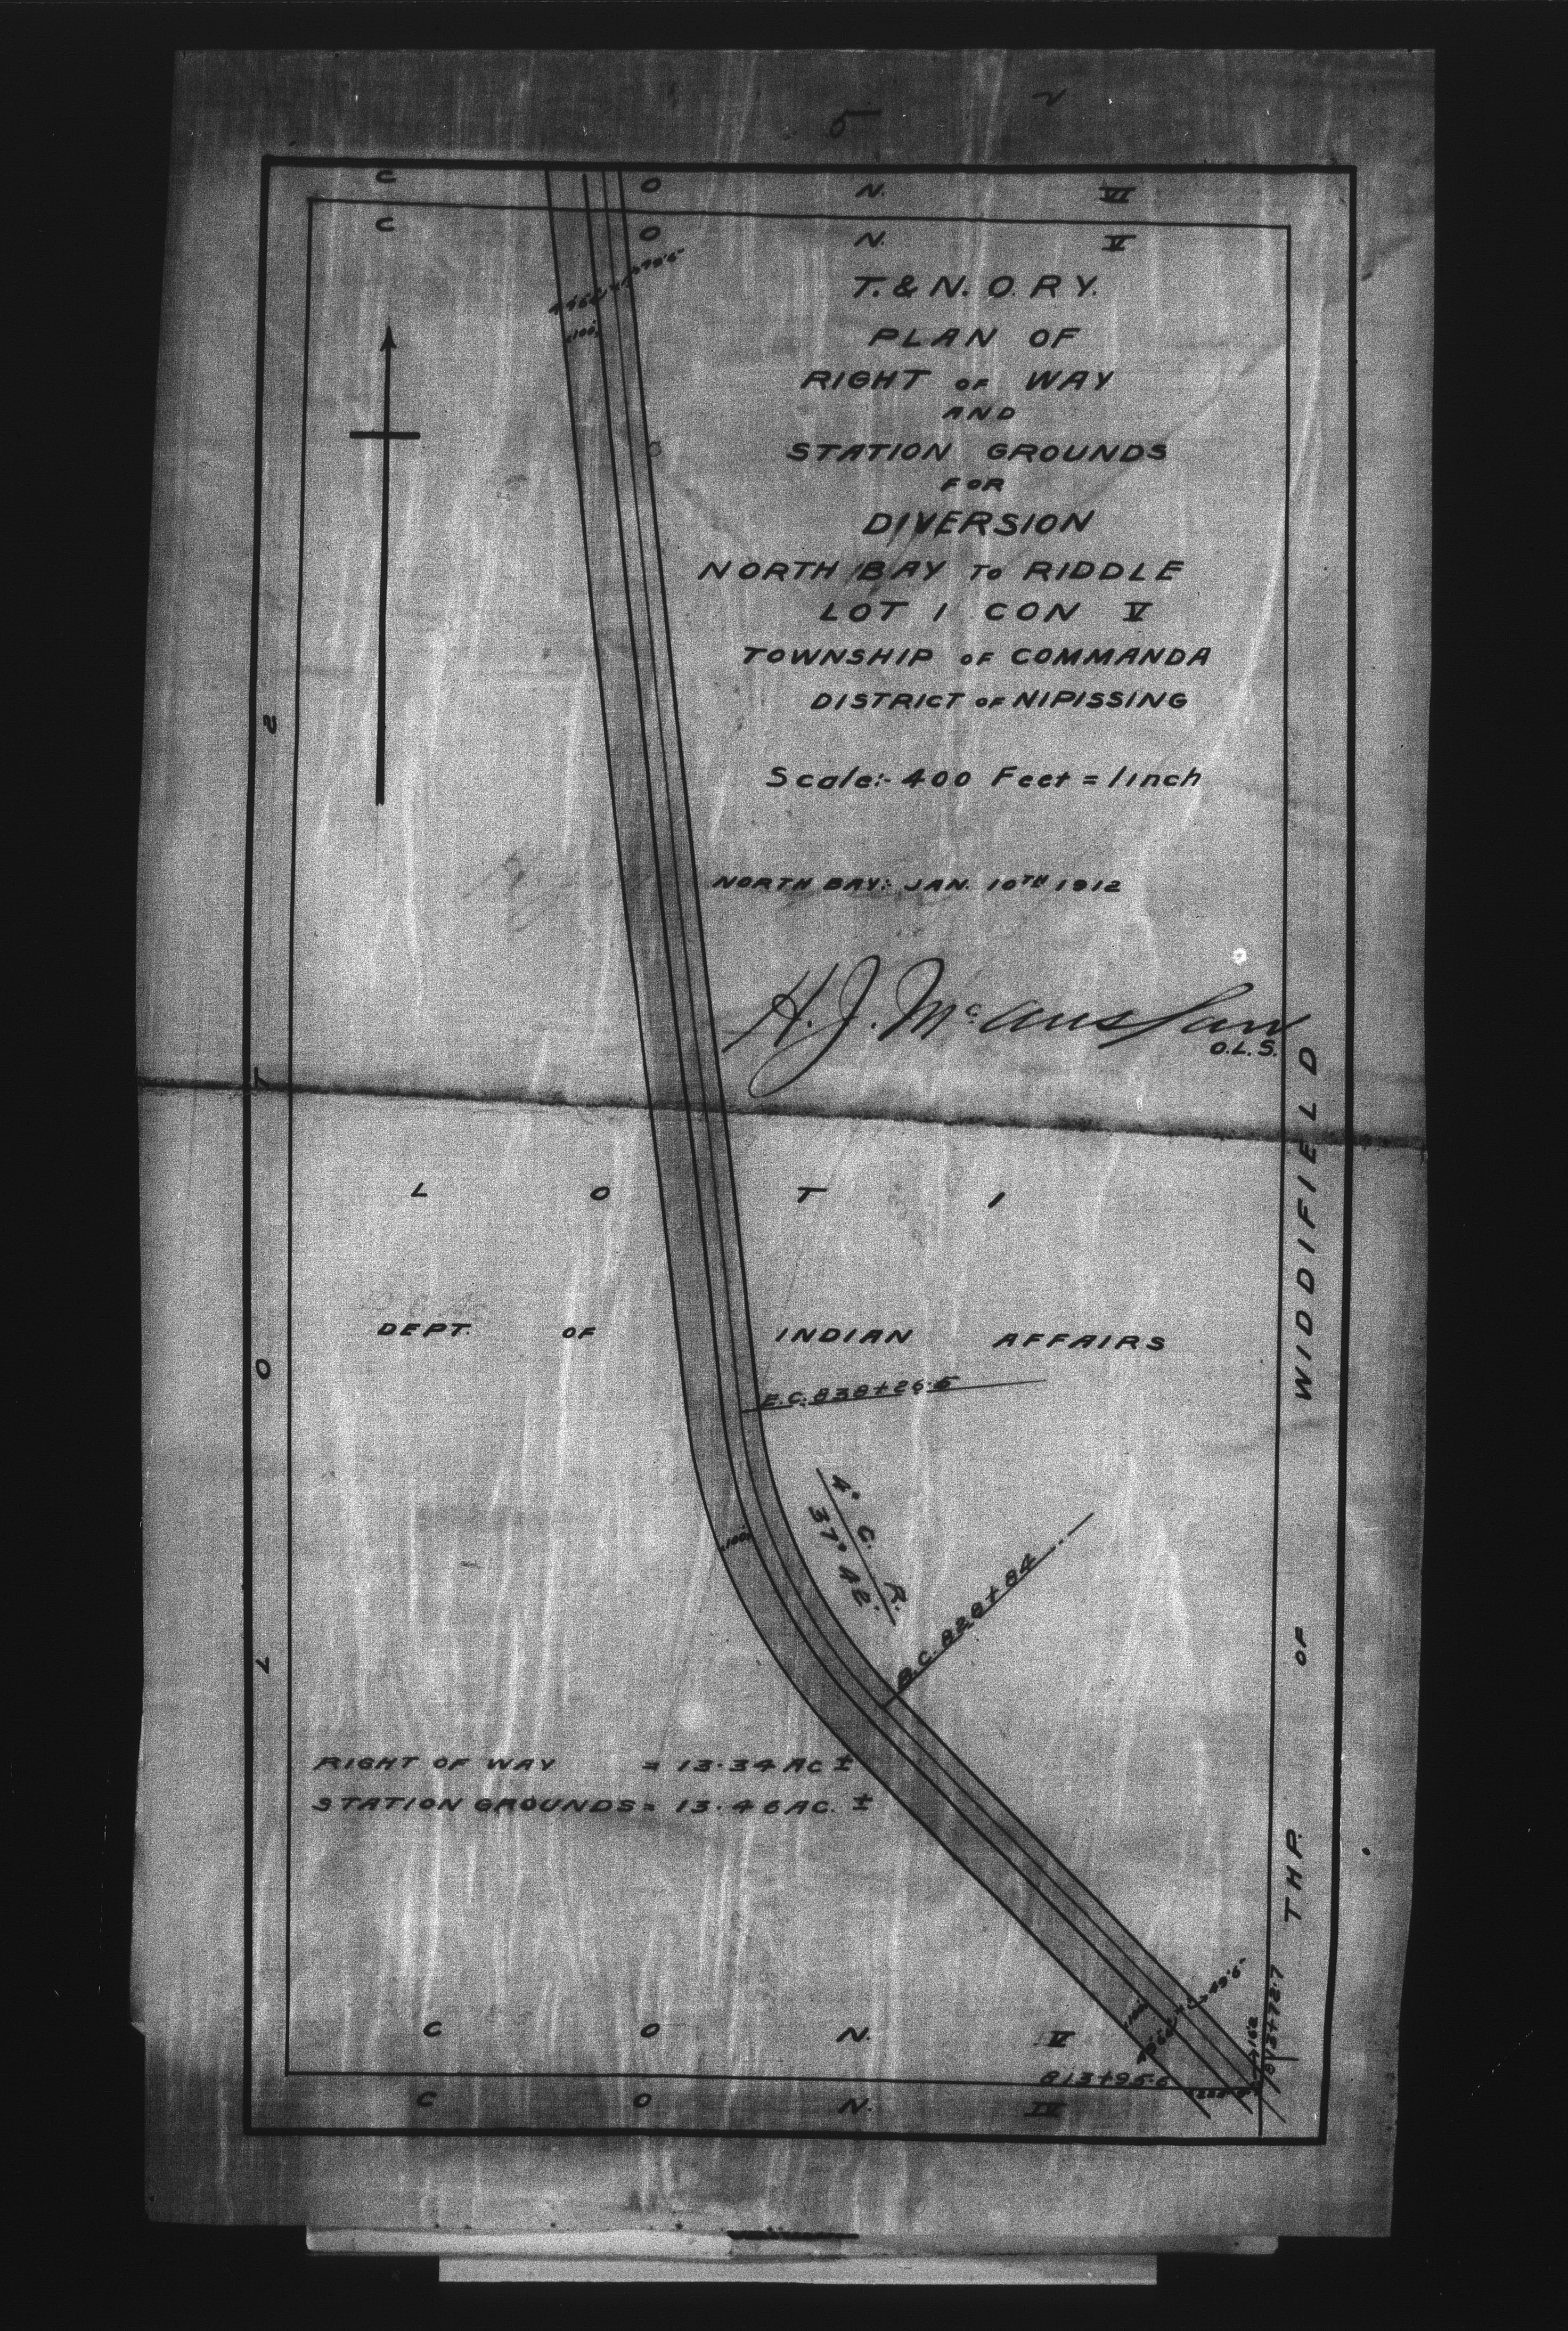 5
C O N. VI
C O N. V
T. & N. O. RY.
PLAN OF
RIGHT OF WAY
AND
STATION GROUNDS
FOR
DIVERSION
NORTH BAY TO RIDDLE
LOT 1 CON V
TOWNSHIP OF COMMANDA
DISTRICT OF NIPISSING
Scale:- 400 Feet = 1 inch
NORTH BAY: JAN. 10TH 1912
H. J. McAuslan
O.L.S.
100'
LOT 2
LOT 1
DEPT. OF INDIAN AFFAIRS
E.C. 838+26.5
4° C. R.
37° 42'
100'
B.C. 828+84
RIGHT OF WAY = 13.34 AC ±
STATION GROUNDS = 13.46 AC. ±
THP. OF WIDDIFIELD
49'6"
100'
813+72.7
C O N. V
813+95.6
C O N. IV